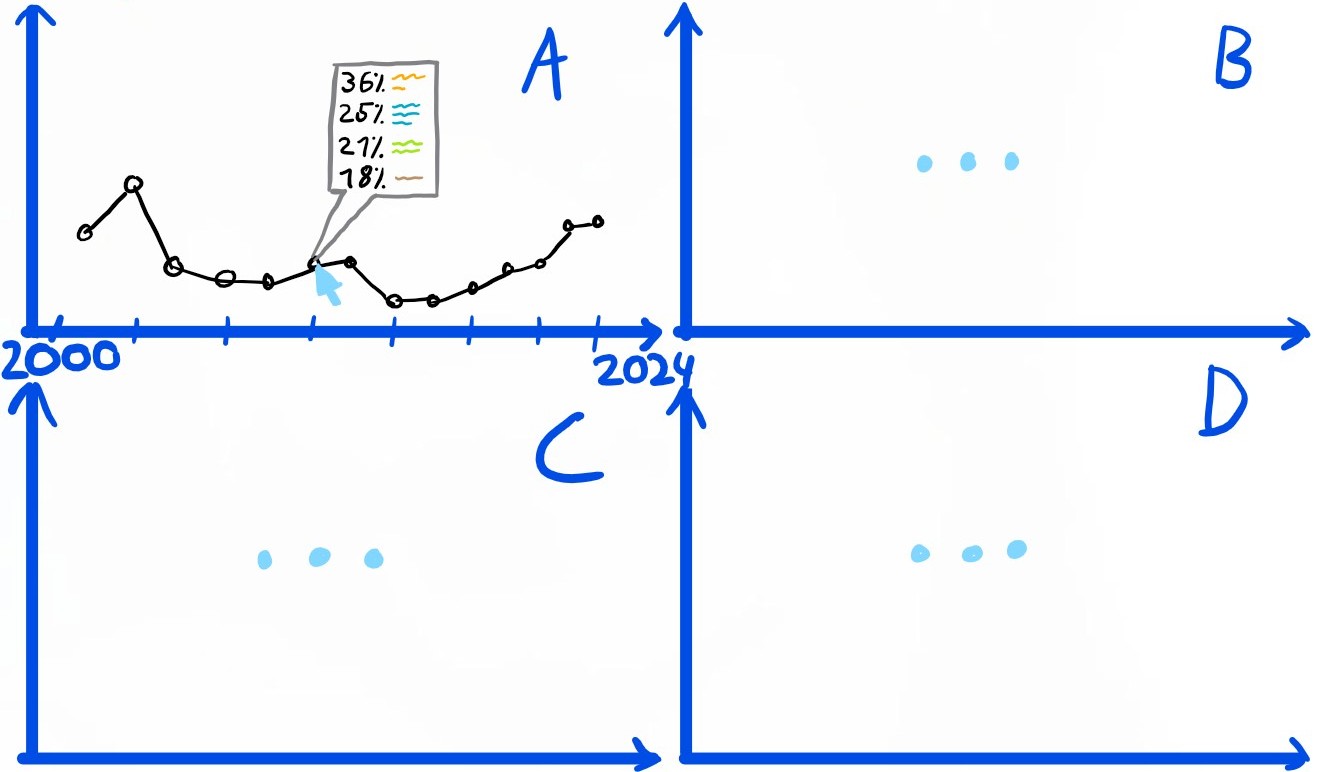 A
36%
25%
21%
18%
2000
2024
B
C
D